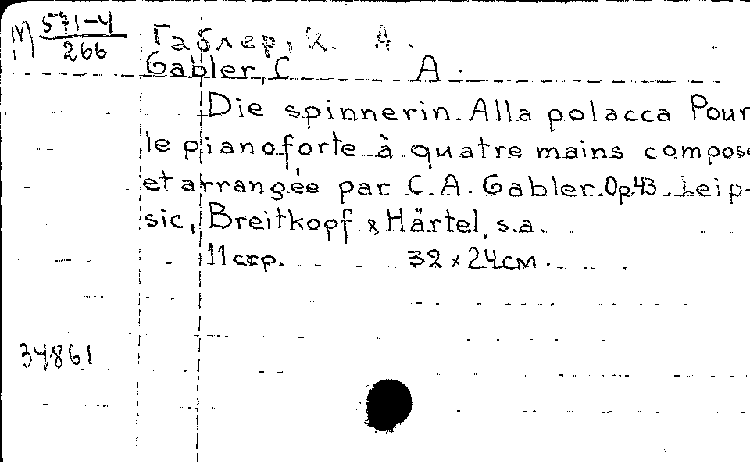 М 571-4
266
Габлер, К. А.
Gabler, C. A.
Die spinnerin. Alla polacca Pour
le pianoforte à quatre mains compose
et arrangée par C. A. Gabler. Op.43. Leip-
sic, Breitkopf & Härtel, s.a.
11 стр. 32 x 24 см.
34861